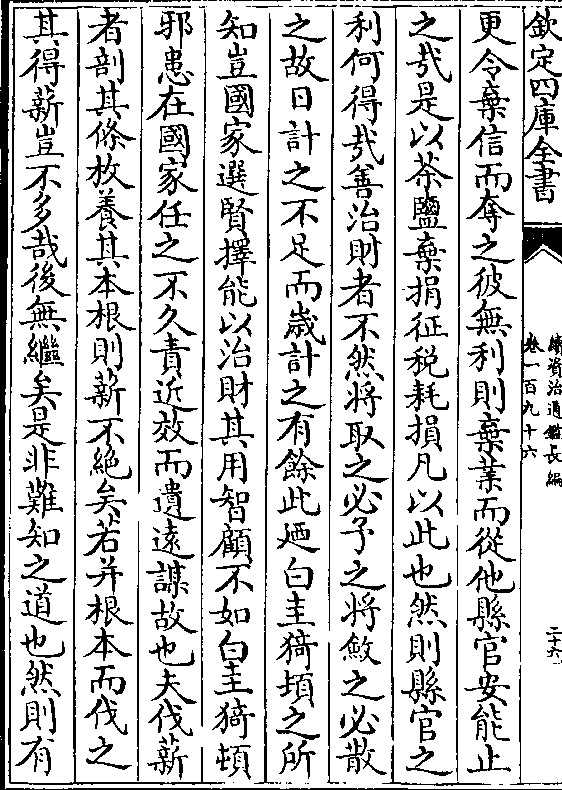 欽定四庫全書
續資治通鑑長編
卷一百九十六
二十六
更令棄信而奪之彼無利則棄業而從他縣官安能止
之哉是以茶鹽棄捐征税耗損凡以此也然則縣官之
利何得哉善治財者不然將取之必予之將斂之必散
之故日計之不足而歲計之有餘此廼白圭猗頓之所
知豈國家選賢擇能以治財其用智顧不如白圭猗頓
邪患在國家任之不久責近效而遺遠謀故也夫伐薪
者剖其條枚養其本根則薪不絶矣若并根本而伐之
其得薪豈不多哉後無繼矣是非難知之道也然則有